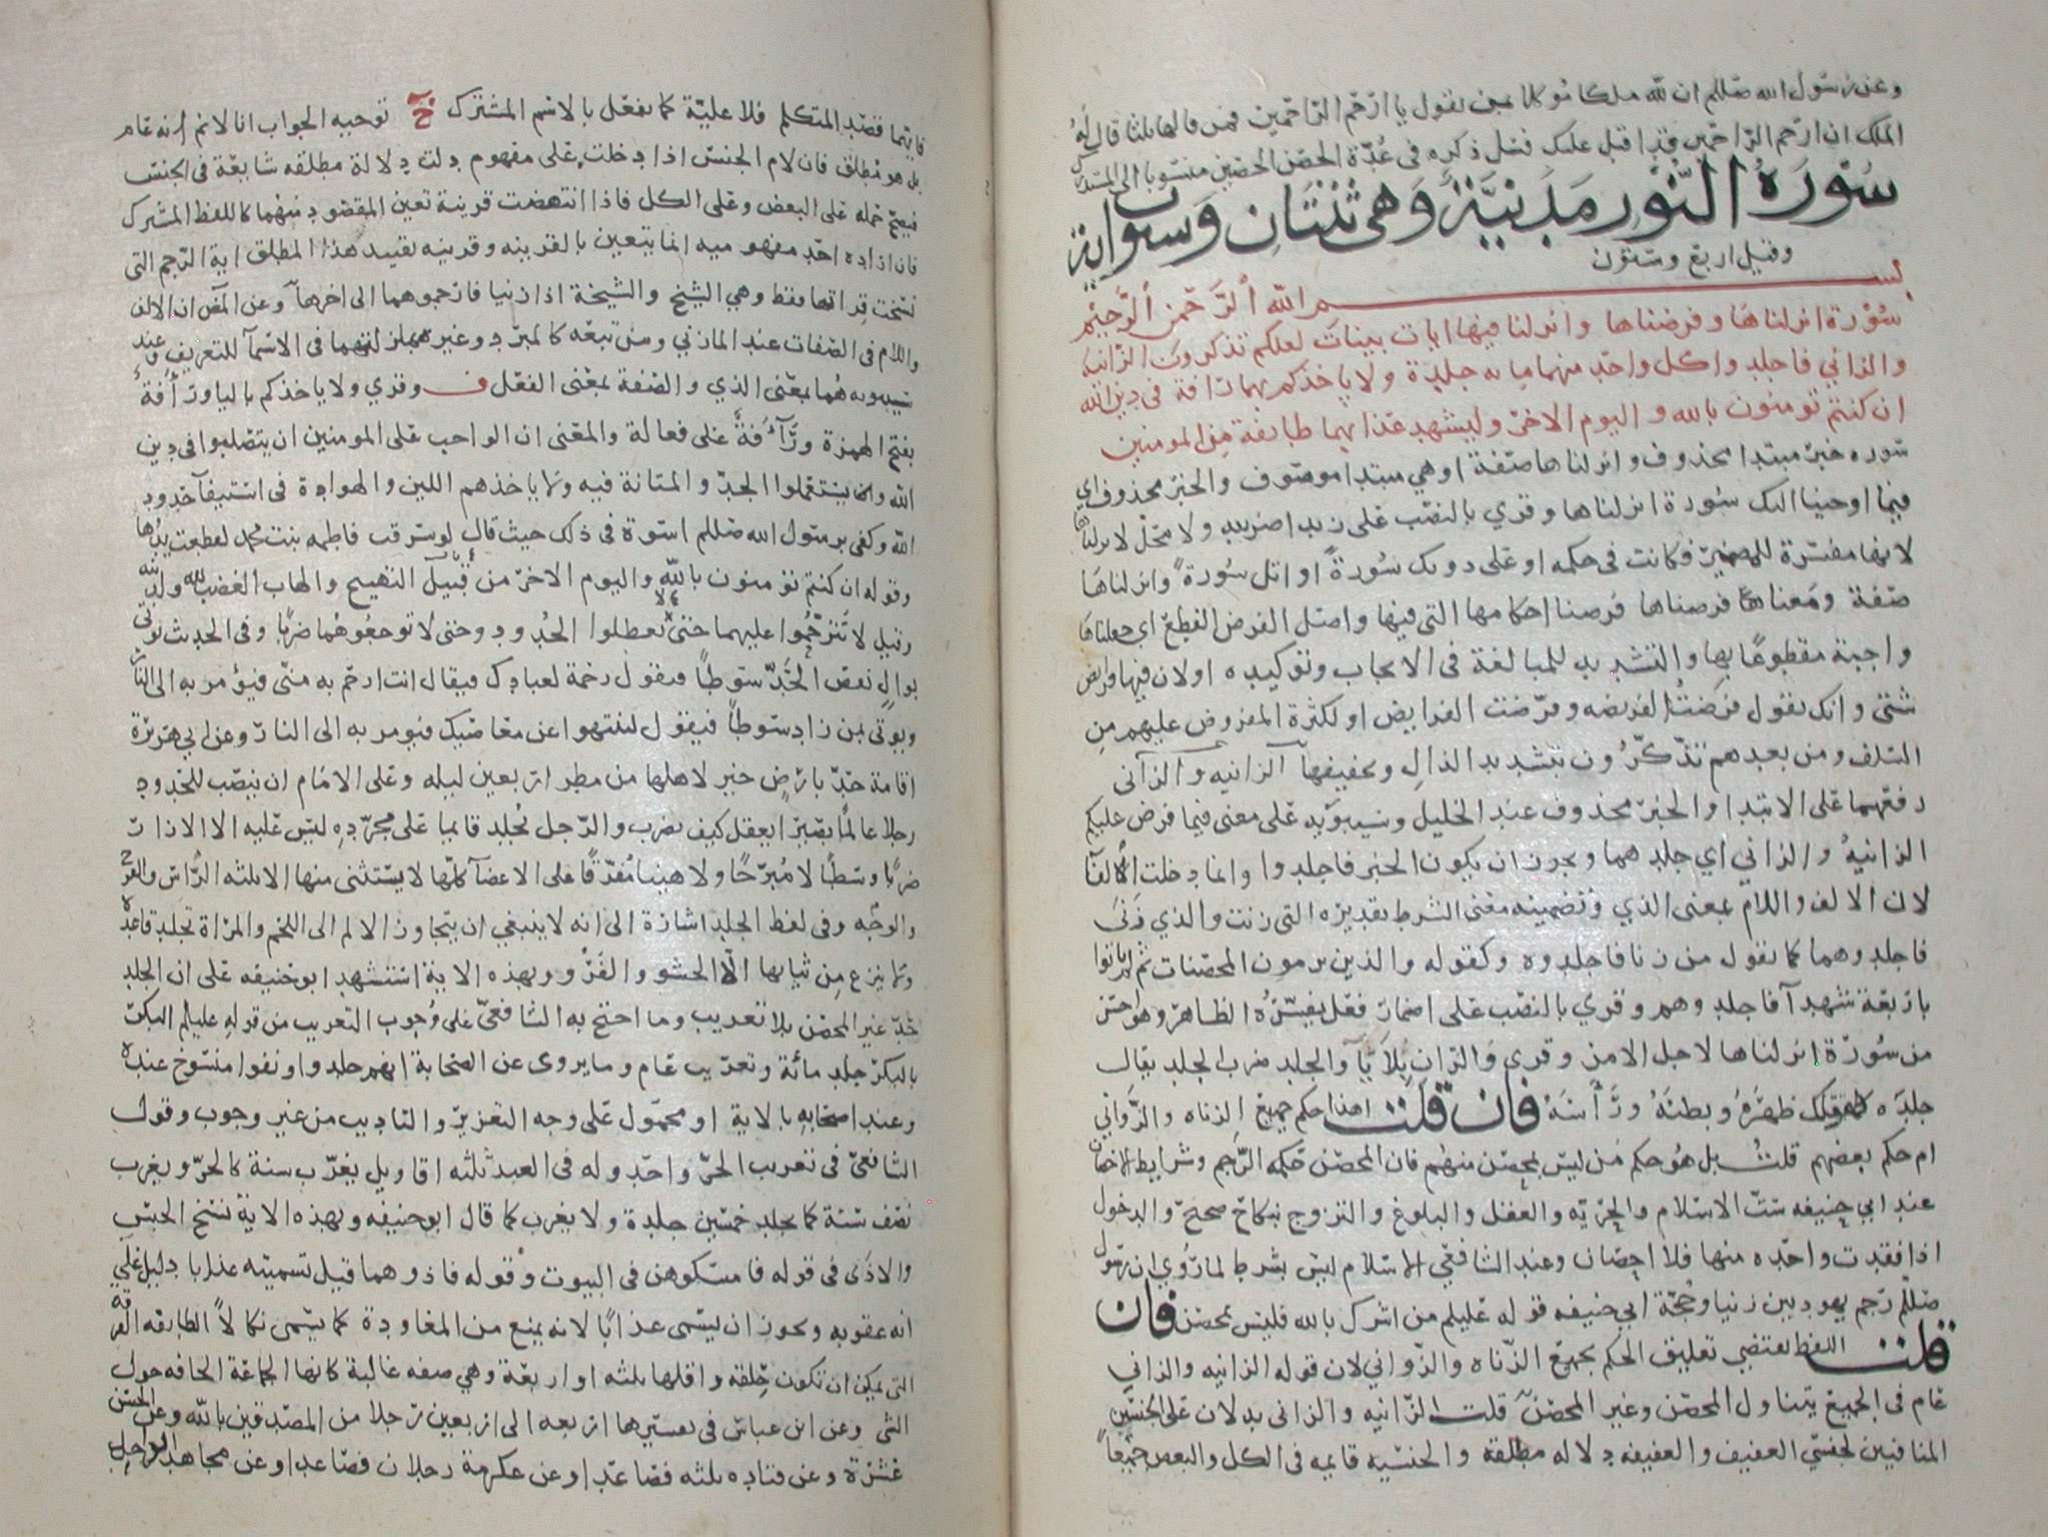 وعن رسول الله صللم ان لله ملكا موكلا بمن يقول يا ارحم الراحمين فمن قالها ثلثا قال له
الملك ان ارحم الراحمين قد اقبل عليك فسل ذكره في عدة الحصن الحصين منسوبا الى المستدرك
سورة النور مدنية وهي ثنتان وستون اية
وقيل اربع وستون
بسم الله الرحمن الرحيم
سورة انزلناها وفرضناها وانزلنا فيها ايات بينات لعلكم تذكرون الزانية
والزاني فاجلدوا كل واحد منهما ماية جلدة ولا ياخذكم بهما رافة في دين الله
ان كنتم تومنون بالله واليوم الاخر وليشهد عذابهما طايفة من المومنين
سورة خبر مبتدا محذوف وانزلناها صفة او هي مبتدا موصوف والخبر محذوف اي
فيما اوحينا اليك سورة انزلناها وقري بالنصب على زيدا ضربته ولا محل لانزلناها
لانها مفسرة للمضمر فكانت في حكمه او على دونك سورة او اتل سورة وانزلناها
صفة ومعنا فرضناها فرضنا احكامها التي فيها واصل الفرض القطع اي جعلناها
واجبة مقطوعا بها والتشديد للمبالغة في الايجاب وتوكيده او لان فيها فرايض
شتى وانك تقول فرضت الفريضه وفرضت الفرايض او لكثرة المفروض عليهم من
السلف ومن بعدهم تذكرون بتشديد الذال وتخفيفها الزانيه والزاني
رفعهما على الابتدا والخبر محذوف عند الخليل وسيبويه على معنى فيما فرض عليكم
الزانية والزاني اي جلدهما ويجوز ان يكون الخبر فاجلدوا وانما دخلت الفا
لان الالف واللام بمعنى الذي وتضمينه معنى الشرط تقديره التي زنت والذي زنى
فاجلدوهما كما تقول من زنا فاجلدوه وكقوله والذين يرمون المحصنات ثم لم ياتوا
باربعة شهدآ فاجلدوهم وقري بالنصب على اضمار فعل يفسره الظاهر وهو احسن
من سورة انزلناها لاجل الامر وقرى والزان بلا يآ والجلد ضرب الجلد يقال
جلده كقولك ظهره وبطنه وراسه فان قلت اهذا حكم جميع الزناه والزواني
ام حكم بعضهم قلت بل هو حكم من ليس بمحصن منهم فان المحصن حكمه الرجم وشرايط الاحصان
عند ابي حنيفه ست الاسلام والحريه والعقل والبلوغ والتزوج بنكاح صحيح والدخول
اذا فقدت واحده منها فلا احصان وعند الشافعي الاسلام ليس بشرط لما روي ان رسول
صللم رجم يهوديين زنيا وحجة ابي حنيفه قوله عليلم من اشرك بالله فليس بمحصن فان
قلت اللفظ يقتضي تعليق الحكم بجميع الزناه والزواني لان قوله الزانيه والزاني
عام في الجميع يتناول المحصن وغير المحصن قلت الزانيه والزاني يدلان على الجنسين
المنافيين لجنسي العفيف والعفيفه دلاله مطلقه والجنسيه قايمه في الكل والبعض جميعا
فايهما قصد المتكلم فلا عليه كما يفعل بالاسم المشترك توجيه الجواب انا لا نم انه عام
بل هو مطلق فان لام الجنس اذا دخلت على مفهوم دلت دلالة مطلقه شايعة في الجنس
فيصح حمله على البعض وعلى الكل فاذا انتهضت قرينة تعين المقصود منهما كاللفظ المشترك
فان ارادة احد مفهوميه انما يتعين بالقرينه وقرينه تقييد هذا المطلق اية الرجم التي
نسخت قراتها فقط وهي الشيخ والشيخة اذا زنيا فارجموهما الى اخرها وعن ان الالف
واللام في الصفات عند المازني ومن تبعه كالمبرد وغيره بمنزلتهما في الاسمآ للتعريف وعند
سيبويه هما بمعنى الذي والصفة بمعنى الفعل ف وقري ولا ياخذكم باليا ورافة
بفتح الهمزة ورآفة على فعالة والمعنى ان الواجب على المومنين ان يتصلبوا في دين
الله وان يستعملوا الجد والمتانة فيه ولا ياخذهم اللين والهوادة في استيفآ حدود
الله وكفى برسول الله صللم اسوة في ذلك حيث قال لو سرقت فاطمه بنت محمد لقطعت يدها
وقوله ان كنتم تومنون بالله واليوم الاخر من قبيل التهييج والهاب الغضب لله ولدينه
وقيل لا تترحموا عليهما حتى لا تعطلوا الحدود وحتى لا توجعوهما ضربا وفي الحديث يوتي
بوال نقص الحد سوطا فيقول رحمة لعبادك فيقال انت ارحم به مني فيؤمر به الى النار
ويوتى بمن زاد سوطا فيقول لينتهوا عن معاصيك فيومر به الى النار وعن ابي هريرة
اقامة حد بارض خير لاهلها من مطر اربعين ليله وعلى الامام ان ينصب للحدود
رجلا عالما بصيرا يعقل كيف يضرب والرجل يجلد قايما على مجرده ليس عليه الا الازار
ضربا وسطا لا مبرحا ولا هينا مفرقا على الاعضآ كلها لا يستثنى منها الا ثلثه الراس والفرج
والوجه وفي لفظ الجلد اشارة الى انه لا ينبغي ان يتجاوز الالم الى اللحم والمراة تجلد قاعدة
ولا ينزع من ثيابها الا الحشو والفرو وبهذه الاية استشهد ابو حنيفه على ان الجلد
حد غير المحصن بلا تغريب وما احتج به الشافعي على وجوب التغريب من قوله عليلم البكر
بالبكر جلد مائة وتغريب عام وما يروى عن الصحابة انهم جلدوا ونفوا منسوخ عنده
وعند اصحابه بالاية او محمول على وجه التعزير والتاديب من غير وجوب وقول
الشافعي في تغريب الحر واحد وله في العبد ثلثه اقاويل يغرب سنة كالحر ويغرب
نصف سنة كما يجلد خمسين جلدة ولا يغرب كما قال ابو حنيفه وبهذه الاية نسخ الحبس
والاذى في قوله فامسكوهن في البيوت وقوله فاذوهما قيل تسميته عذابا دليل على
انه عقوبه ويجوز ان يسمى عذابا لانه يمنع من المعاودة كما يسمى نكالا الطايفه الفرقه
التي يمكن ان تكون حلقه واقلها ثلثه او اربعة وهي صفه غالبة كانها الجماعة الحافه حول
الشي وعن ابن عباس في تفسيرها اربعه الى اربعين رجلا من المصدقين بالله وعن الحسن
عشرة وعن قتاده ثلثه فصاعدا وعن عكرمة رجلان فصاعدا وعن مجاهد الواحد